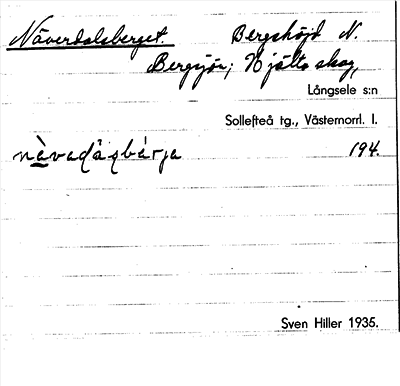 Näverdalsberget. Bergshöjd N.
Bergsjön; Hjälta skog,
Långsele s:n
Sollefteå tg., Västernorrl. l.
194.
Sven Hiller 1935.